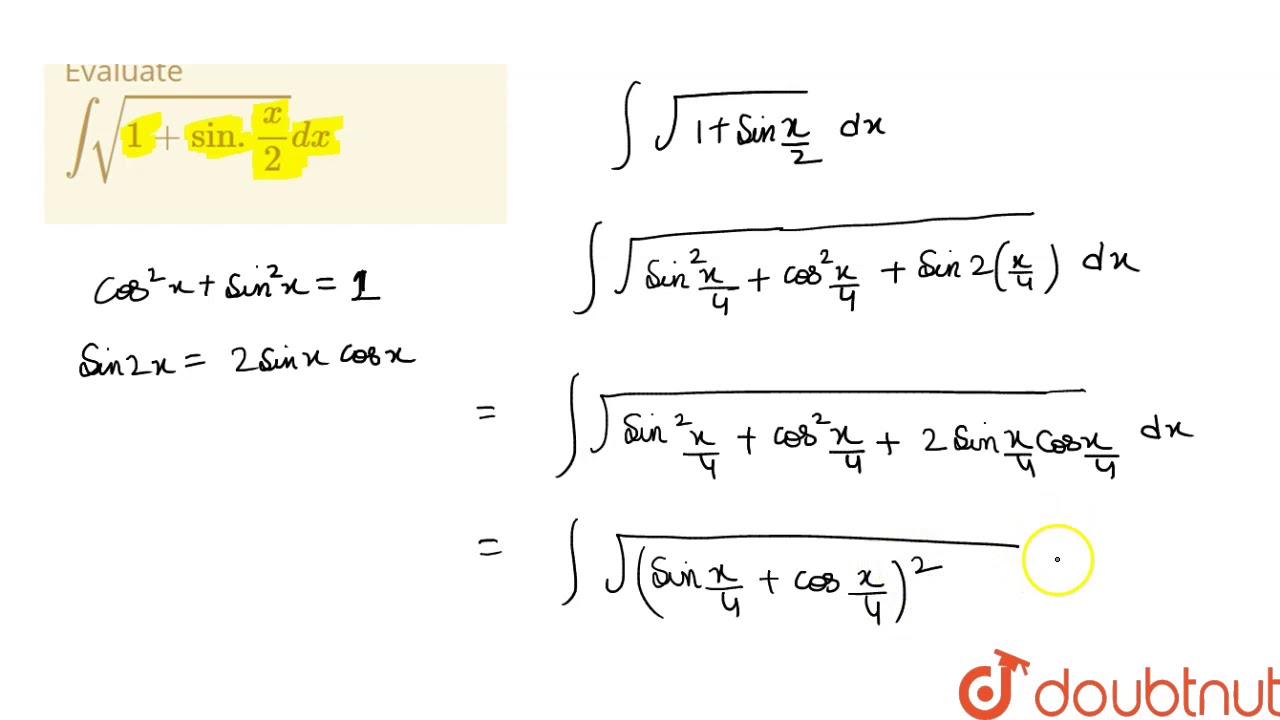 Evaluate
∫√(1 + sin. x/2) dx
∫ √(1 + Sin x/2) dx
∫ √(Sin² x/4 + cos² x/4 + Sin 2(x/4)) dx
cos²x + Sin²x = 1
Sin2x = 2 Sinx cosx
= ∫ √(Sin² x/4 + cos² x/4 + 2 Sin x/4 Cos x/4) dx
= ∫ √(Sin x/4 + cos x/4)²
doubtnut